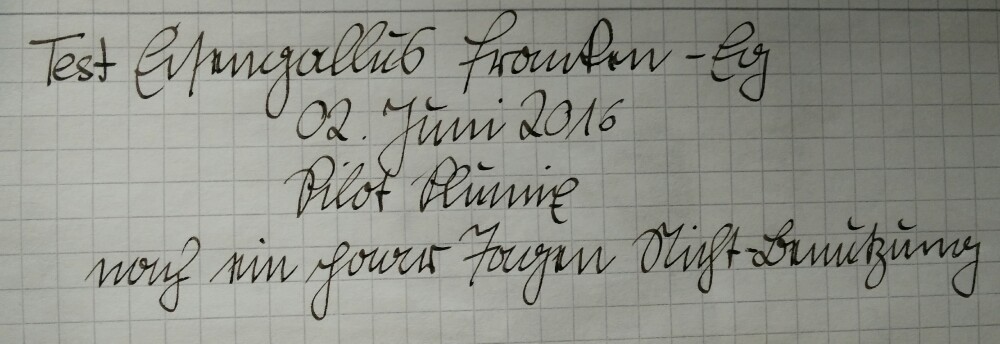 Test Eisengallus Franken-Eg
02. Juni 2016
Pilot Plumix
nach ein paar Tagen Nicht-Benutzung